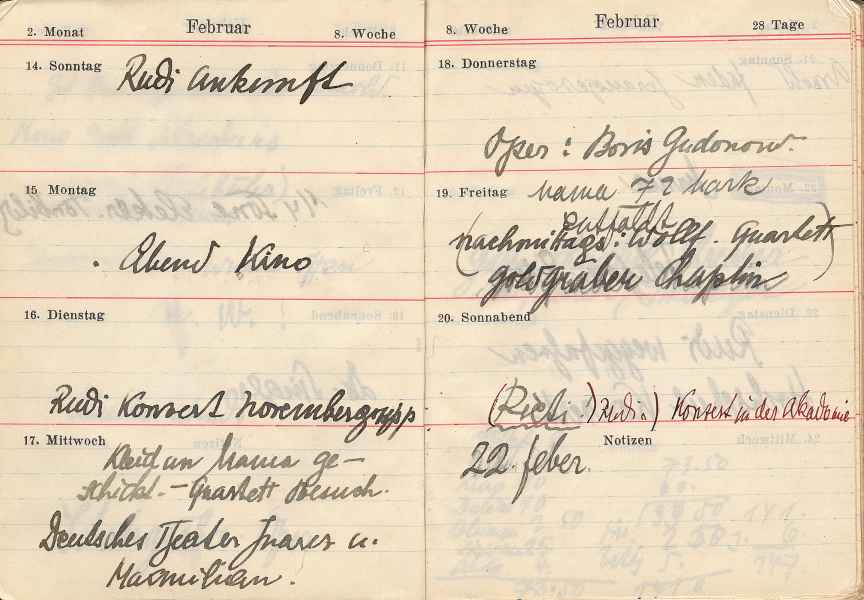 2. Monat Februar 8. Woche
14. Sonntag Rudi Ankunft
15 Montag
Abend Kino
16. Dienstag
Rudi Konzert Novembergrupp
17. Mittwoch
Kleid an Mama ge-
schickt. - Quartett Besuch.
Deutsches Theater Juarez u.
Maxmilian.
8. Woche Februar 28 Tage
18. Donnerstag
Oper: Boris Gudonow.
19. Freitag Mama 72 Mark
entfällt
(nachmitags: Wolff. Quartett
Goldgräber Chaplin)
20. Sonnabend
Rudi.) Konzert in der Akademie
Notizen
22. feber.